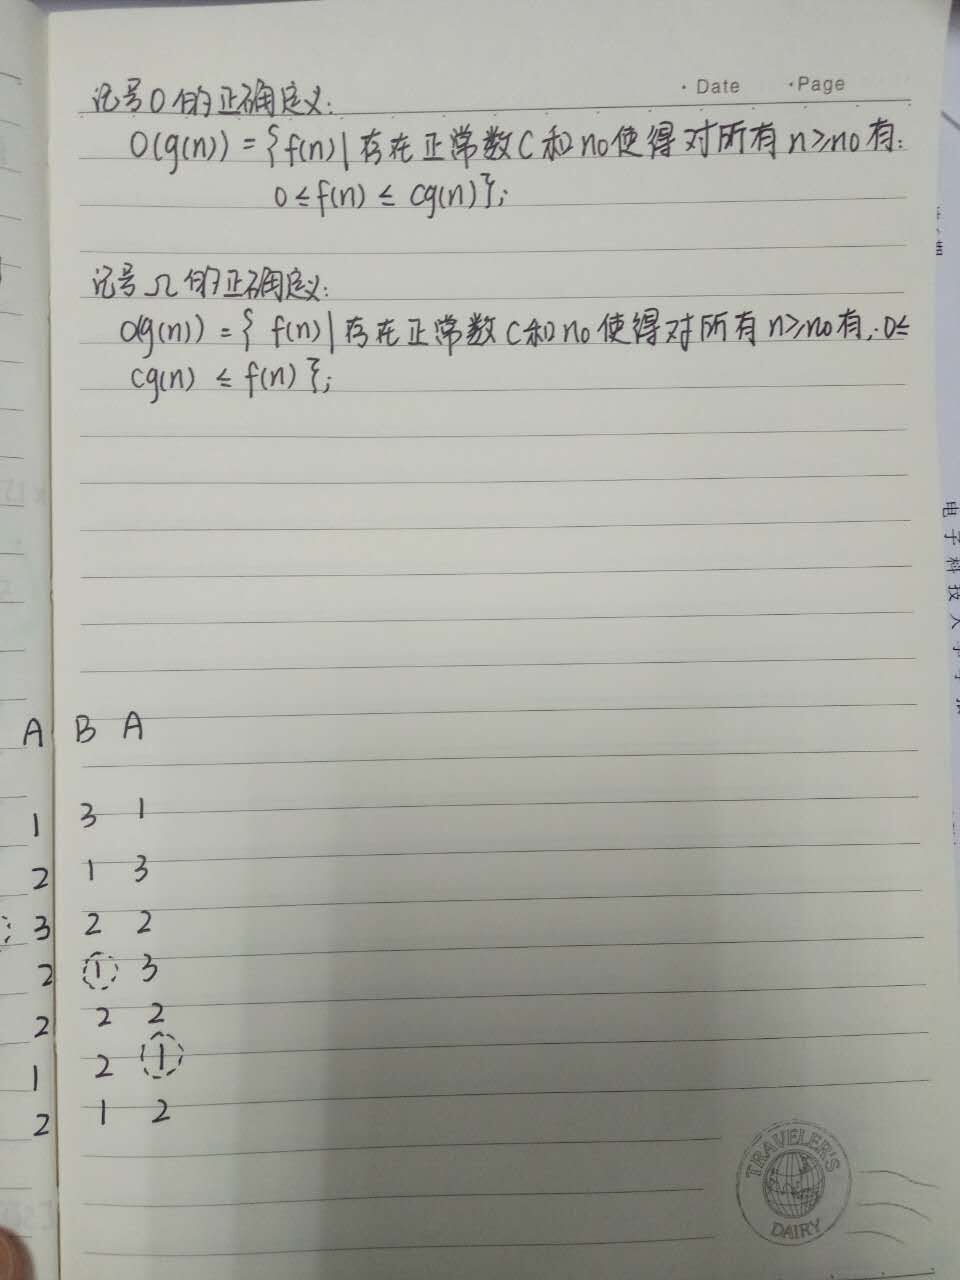 · Date ·Page
记号O的正确定义:
O(g(n)) = {f(n)| 存在正常数C和n0使得对所有n≥n0有:
0≤f(n) ≤ cg(n)};
记号Ω的正确定义:
O(g(n)) = { f(n)| 存在正常数C和n0使得对所有n≥n0有: 0≤
cg(n) ≤ f(n) };
A B A
1 3 1
2 1 3
3 2 2
2 1 3
2 2 2
1 2 1
2 1 2
TRAVELER'S
DAIRY
电子科技大学